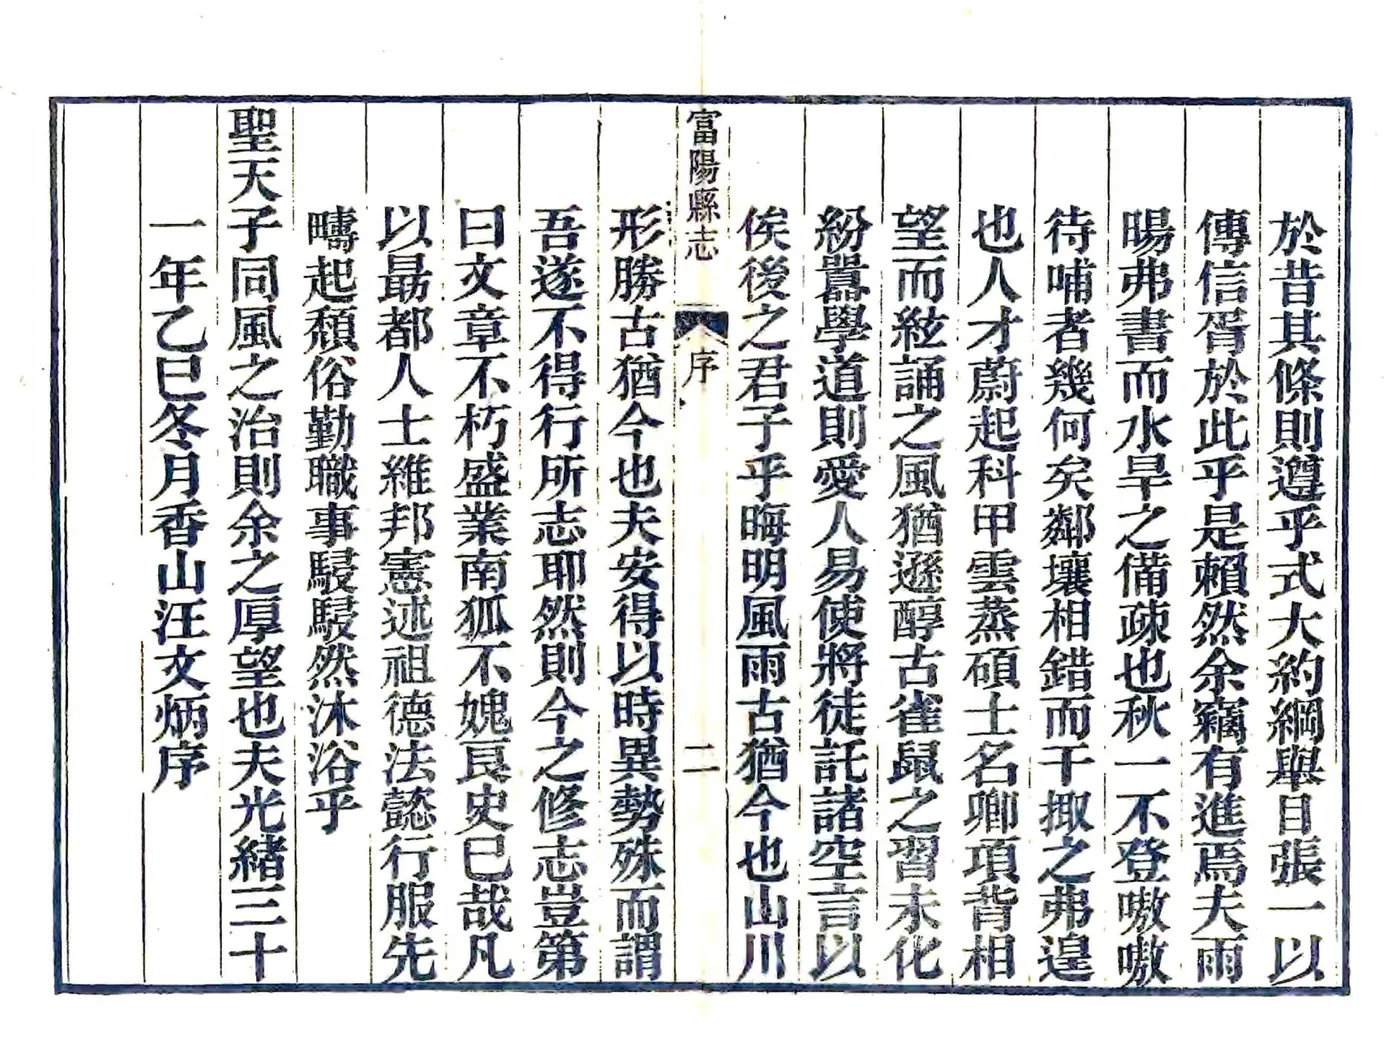 於昔其條則遵乎式大約綱舉目張一以
傳信胥於此乎是賴然余竊有進焉夫雨
暘弗書而水旱之備疎也秋一不登嗷嗷
待哺者幾何矣鄰壤相錯而干掫之弗遑
也人才蔚起科甲雲蒸碩士名卿項背相
望而絃誦之風猶遜醇古雀鼠之習未化
紛囂學道則愛人易使將徒託諸空言以
俟後之君子乎晦明風雨古猶今也山川
富陽縣志 序 二
形勝古猶今也夫安得以時異勢殊而謂
吾遂不得行所志耶然則今之修志豈第
曰文章不朽盛業南狐不媿良史已哉凡
以勗都人士維邦憲述祖德法懿行服先
疇起頹俗勤職事駸駸然沐浴乎
聖天子同風之治則余之厚望也夫光緒三十
一年乙巳冬月香山汪文炳序